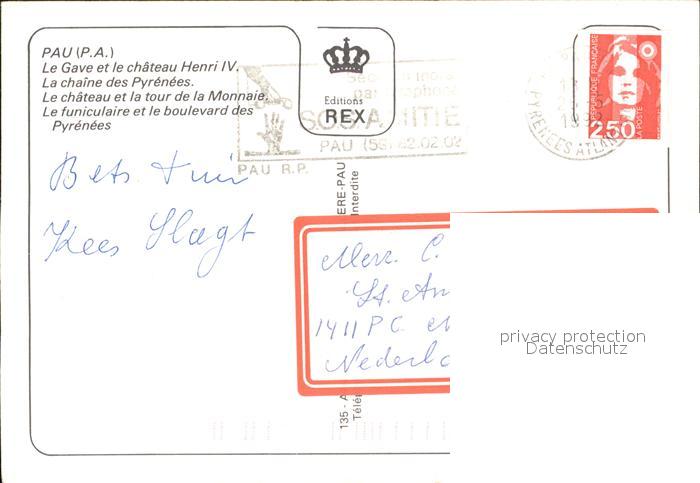 PAU (P.A.)
Le Gave et le château Henri IV.
La chaîne des Pyrénées.
Le château et la tour de la Monnaie.
Le funiculaire et le boulevard des
Pyrénées
Editions
REX
S.O.S AMITIE
PAU (59) 82.02.02
PAU R.P.
REPUBLIQUE FRANÇAISE
LA POSTE
2,50
PYRENEES ATLAN
13
199
ERE-PAU
Interdite
135 - A
Télé
Bets
Kees Slagt
Mevr. C.
St. An
1411 PC
Nederl
privacy protection
Datenschutz